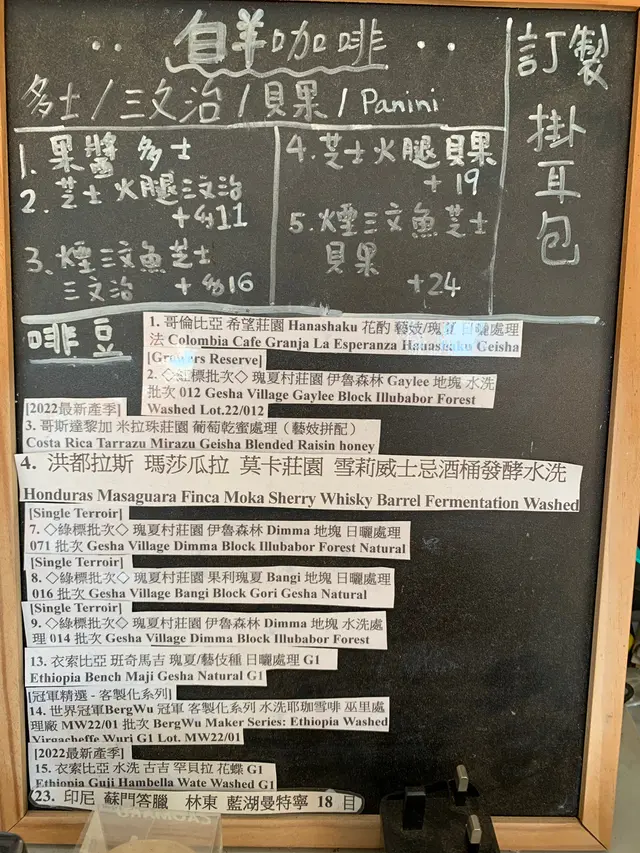 ·· 自羊咖啡 ··
多士/三文治/貝果/Panini
1. 果醬多士
2. 芝士火腿三文治
+$11
3. 煙三文魚芝士
三文治 +$16
4. 芝士火腿貝果
+19
5. 煙三文魚芝士
貝果
+24
訂製
掛耳包
啡豆
1. 哥倫比亞 希望莊園 Hanashaku 花酌 藝妓/瑰夏 日曬處理
法 Colombia Cafe Granja La Esperanza Hanashaku Geisha
[Growers Reserve]
2. ◇紅標批次◇ 瑰夏村莊園 伊魯森林 Gaylee 地塊 水洗
批次 012 Gesha Village Gaylee Block Illubabor Forest
Washed Lot.22/012
[2022最新產季]
3. 哥斯達黎加 米拉珠莊園 葡萄乾蜜處理（藝妓拼配）
Costa Rica Tarrazu Mirazu Geisha Blended Raisin honey
4. 洪都拉斯 瑪莎瓜拉 莫卡莊園 雪莉威士忌酒桶發酵水洗
Honduras Masaguara Finca Moka Sherry Whisky Barrel Fermentation Washed
[Single Terroir]
7. ◇綠標批次◇ 瑰夏村莊園 伊魯森林 Dimma 地塊 日曬處理
071 批次 Gesha Village Dimma Block Illubabor Forest Natural
[Single Terroir]
8. ◇綠標批次◇ 瑰夏村莊園 果利瑰夏 Bangi 地塊 日曬處理
016 批次 Gesha Village Bangi Block Gori Gesha Natural
[Single Terroir]
9. ◇綠標批次◇ 瑰夏村莊園 伊魯森林 Dimma 地塊 水洗處
理 014 批次 Gesha Village Dimma Block Illubabor Forest
13. 衣索比亞 班奇馬吉 瑰夏/藝伎種 日曬處理 G1
Ethiopia Bench Maji Gesha Natural G1
[冠軍精選 - 客製化系列]
14. 世界冠軍BergWu 冠軍 客製化系列 水洗耶珈雪啡 巫里處
理廠 MW22/01 批次 BergWu Maker Series: Ethiopia Washed
Yirgacheffe Wuri G1 Lot. MW22/01
[2022最新產季]
15. 衣索比亞 水洗 古吉 罕貝拉 花蝶 G1
Ethiopia Guji Hambella Wate Washed G1
23. 印尼 蘇門答臘 林東 藍湖曼特寧 18 目